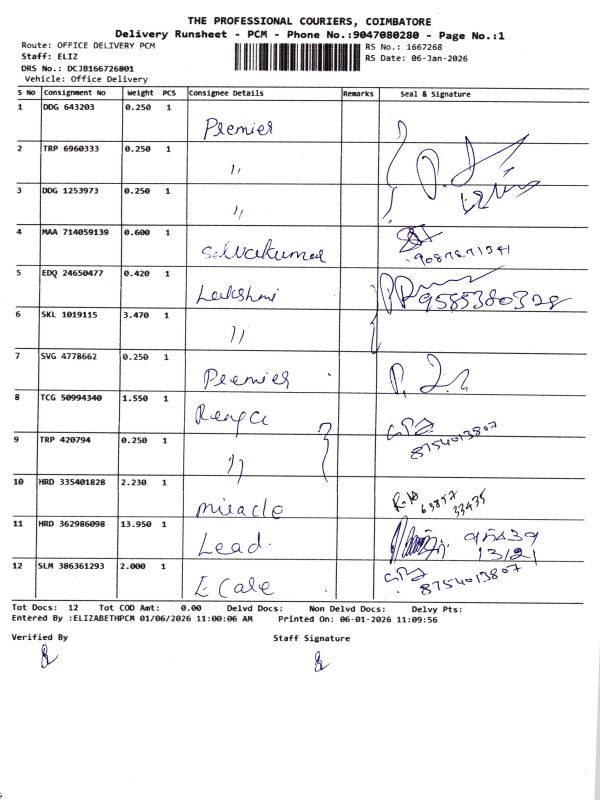 THE PROFESSIONAL COURIERS, COIMBATORE
Delivery Runsheet - PCM - Phone No.:9047080280 - Page No.:1
Route: OFFICE DELIVERY PCM
RS No.: 1667268
Staff: ELIZ
RS Date: 06-Jan-2026
DRS No.: DCJB166726801
Vehicle: Office Delivery
S No Consignment No Weight PCS Consignee Details Remarks Seal & Signature
1 DDG 643203 0.250 1 Premier
2 TRP 6960333 0.250 1 "
3 DDG 1253973 0.250 1 "
4 MAA 714059139 0.600 1 Selvakumar
5 EDQ 24650477 0.420 1 Lakshmi 9585380328
6 SKL 1019115 3.470 1 "
7 SVG 4778662 0.250 1 Premier
8 TCG 50994340 1.550 1 Renga 8754013807
9 TRP 420794 0.250 1 "
10 HRD 335401828 2.230 1 miracle 63857 33435
11 HRD 362986098 13.950 1 Lead. 95439 13121
12 SLM 386361293 2.000 1 E Care 8754013807
Tot Docs: 12 Tot COD Amt: 0.00 Delvd Docs: Non Delvd Docs: Delvy Pts:
Entered By :ELIZABETHPCM 01/06/2026 11:00:06 AM Printed On:06-01-2026 11:09:56
Verified By Staff Signature